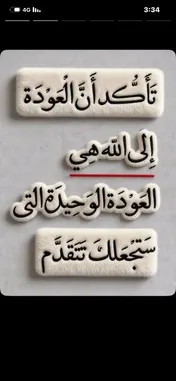 4G
3:34
تَأَكَّد أَنَّ الْعَوْدَة
إِلى اللّه هِي
العَوْدَة الوَحِيدَة التى
سَتَجْعَلكَ تَتَقَدَّم